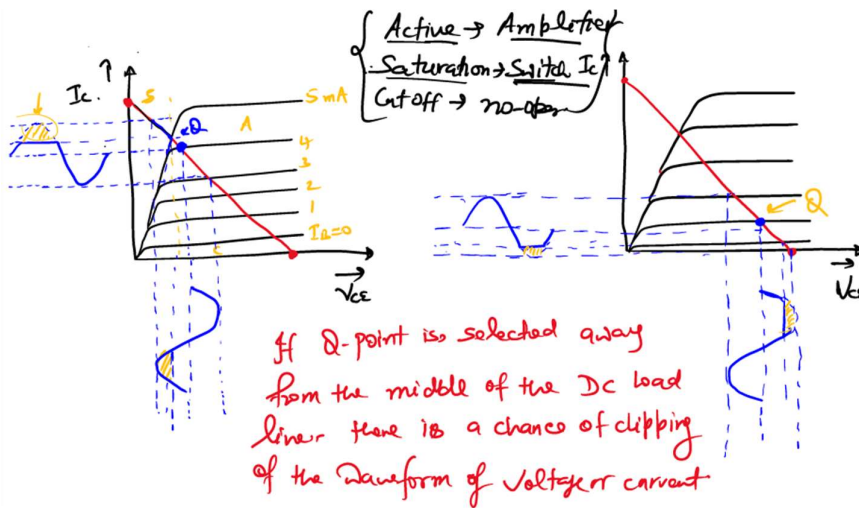 Active → Amplifier
Saturation → Switch
Cutoff → no-oper
Ic
S
Q
A
5mA
4
3
2
1
IB=0
C
VCE
Ic
Q
VCE
If Q-point is selected away
from the middle of the DC load
line there is a chance of clipping
of the waveform of voltage or current